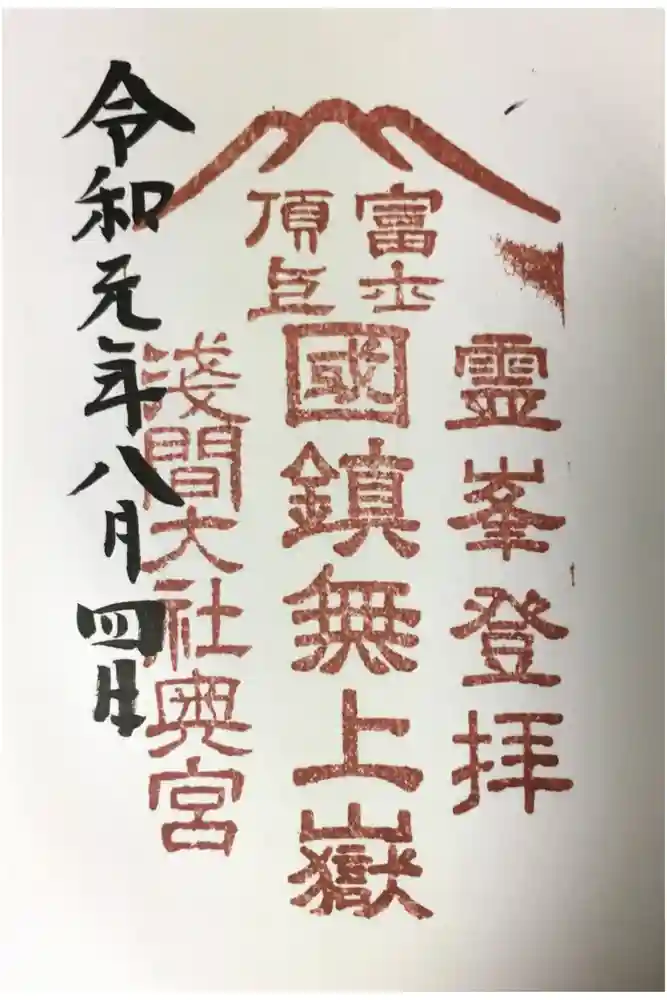 富士
頂上
霊峯登拝
國鎮無上嶽
浅間大社奥宮
令和元年八月四日